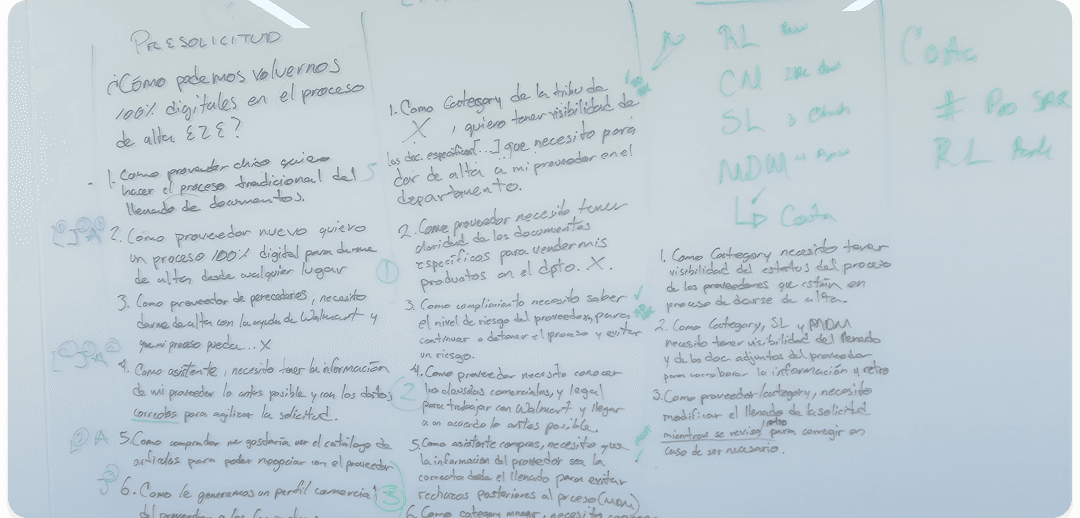 PRESOLICITUD
¿Cómo podemos volvernos
100% digitales en el proceso
de alta E2E?
1. Como proveedor chico quiero
hacer el proceso tradicional del
llenado de documentos.
2. Como proveedor nuevo quiero
un proceso 100% digital para darme
de alta desde cualquier lugar
3. Como proveedor de perecederos, necesito
darme de alta con la ayuda de Walmart y
que mi proceso pueda... X
4. Como asistente, necesito tener la información
de mi proveedor lo antes posible y con los datos
correctos para agilizar la solicitud.
5. Como comprador me gustaría ver el catálogo de
artículos para poder negociar con el proveedor
6. Como le generamos un perfil comercial
1. Como Category de la tribu de
X, quiero tener visibilidad de
los doc. específicos [...] que necesito para
dar de alta a mi proveedor en el
departamento.
2. Como proveedor necesito tener
claridad de los documentos
específicos para vender mis
productos en el dpto. X.
3. Como cumplimiento necesito saber
el nivel de riesgo del proveedor, para
continuar o detener el proceso y evitar
un riesgo.
4. Como proveedor necesito conocer
las clausulas comerciales, y legal
para trabajar con Walmart y llegar
a un acuerdo lo antes posible.
5. Como asistente compras, necesito que
la información del proveedor sea la
correcta desde el llenado para evitar
rechazos posteriores al proceso (MDM)
6. Como category manager, necesito
RL
CM
SL
MDM
↳ Costa
1. Como Category necesito tener
visibilidad del estatus del proceso
de los proveedores que están en
proceso de darse de alta.
2. Como Category, SL y MDM
necesito tener visibilidad del llenado
y de los doc. adjuntos del proveedor
para corroborar la información y retro
3. Como proveedor/category, necesito
modificar el llenado de la solicitud
mientras se revisa/retro para corregir en
caso de ser necesario.
Costa
# Pro SAR
RL